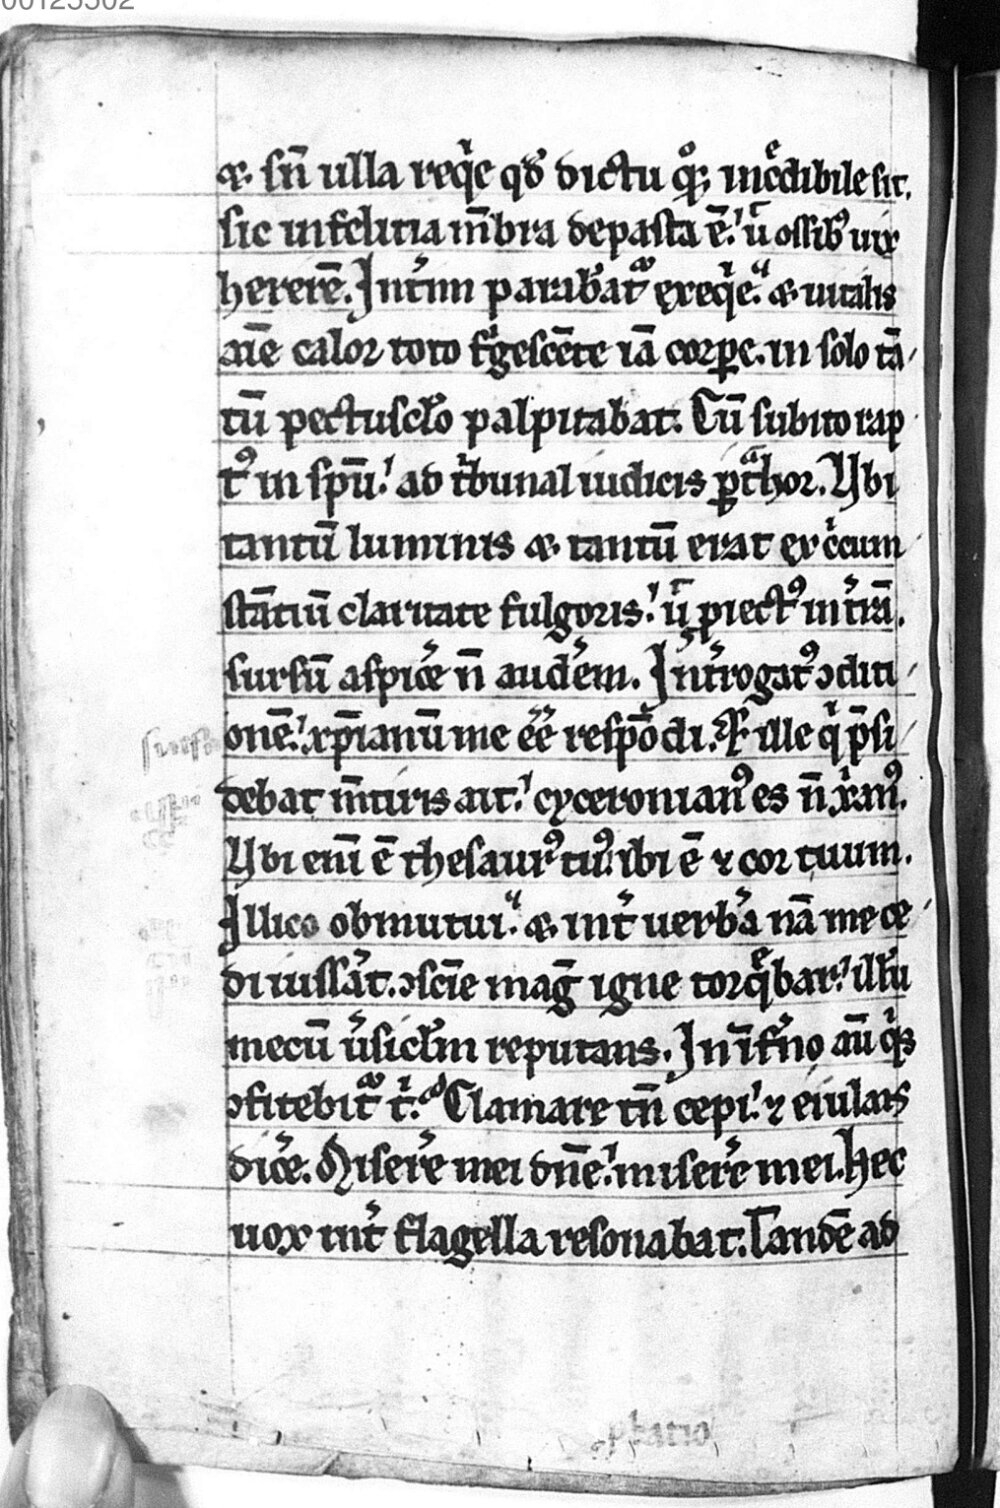 00125502
⁊ sn̄ ulla req̇e qđ dictu q̊q; inc̊dibile sit.
sic infelicia m̄bra depasta ē. ut̄ ossibꝰ uix
hererē. Int̉im parabāt᷑ exeqͥe. ⁊ uitalis
aīe calor toto fͥgescēte iā corꝑe. in solo tā
tū pectuscl̉o palpitabat. Cū subito rap
tꝰ in sp̄u. ad tͥbunal iudicis ꝑtͣhor. Ubi
tantū luminis ⁊ tantū erat ex cͥcum
stātiū claritate fulgoris. ut̄ ꝓiectꝰ in t̉rā.
sursū aspicẻ n̄ audẻm. Int̉rogatꝰ ꝯditi
onē. xp̄ianū me ee̅ respōdi. Et ille qͥ p̄si
debat m̄tiris ait. cyceronianꝰ es n̄ xͥanꝰ.
Ubi eni ē thesaurꝰ tuꝰ. ibi ē ⁊ cor tuum.
Illico obmutui. ⁊ int̉ uerb̉a nā me ce
di iuss̉at. ꝯscīe maḡ igne torq̊bar. illū
mecū ủsiclm̄ reputans. In īf̉no aū qͥs
ꝯfitebit᷑ tͥ. Clamare tn̄ cepi. ⁊ eiulans
dicẻ. Miserẻ mei dn̄e. miserẻ mei. hec
uox int̉ flagella resonabat. Tandē ad